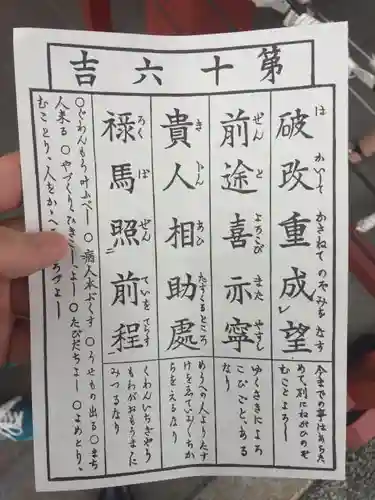 第十六吉
破改重成望
は かいて かさねて のぞみを なす
前途喜亦寧
ぜん と よろこび また やすし
貴人相助處
き にん あひ たすくるところ
禄馬照前程
ろく ば ぜん ていを てらす
今までの事はあらた
めて別にねがひのぞ
むことよろし
ゆくさきによろ
こびごと、ある
なり
めうへの人よりたす
けをゑておいおいちか
らをえるなり
くわんいちぎやう
もわがおもうまに
みつるなり
○ぐわんもう叶ふべー○病人本ぷくす○うせもの出る○まち
人来る○やづくり、ひきこーよー○たびだちよー○よめとり、
むことり、人をかゝへるよろづよー